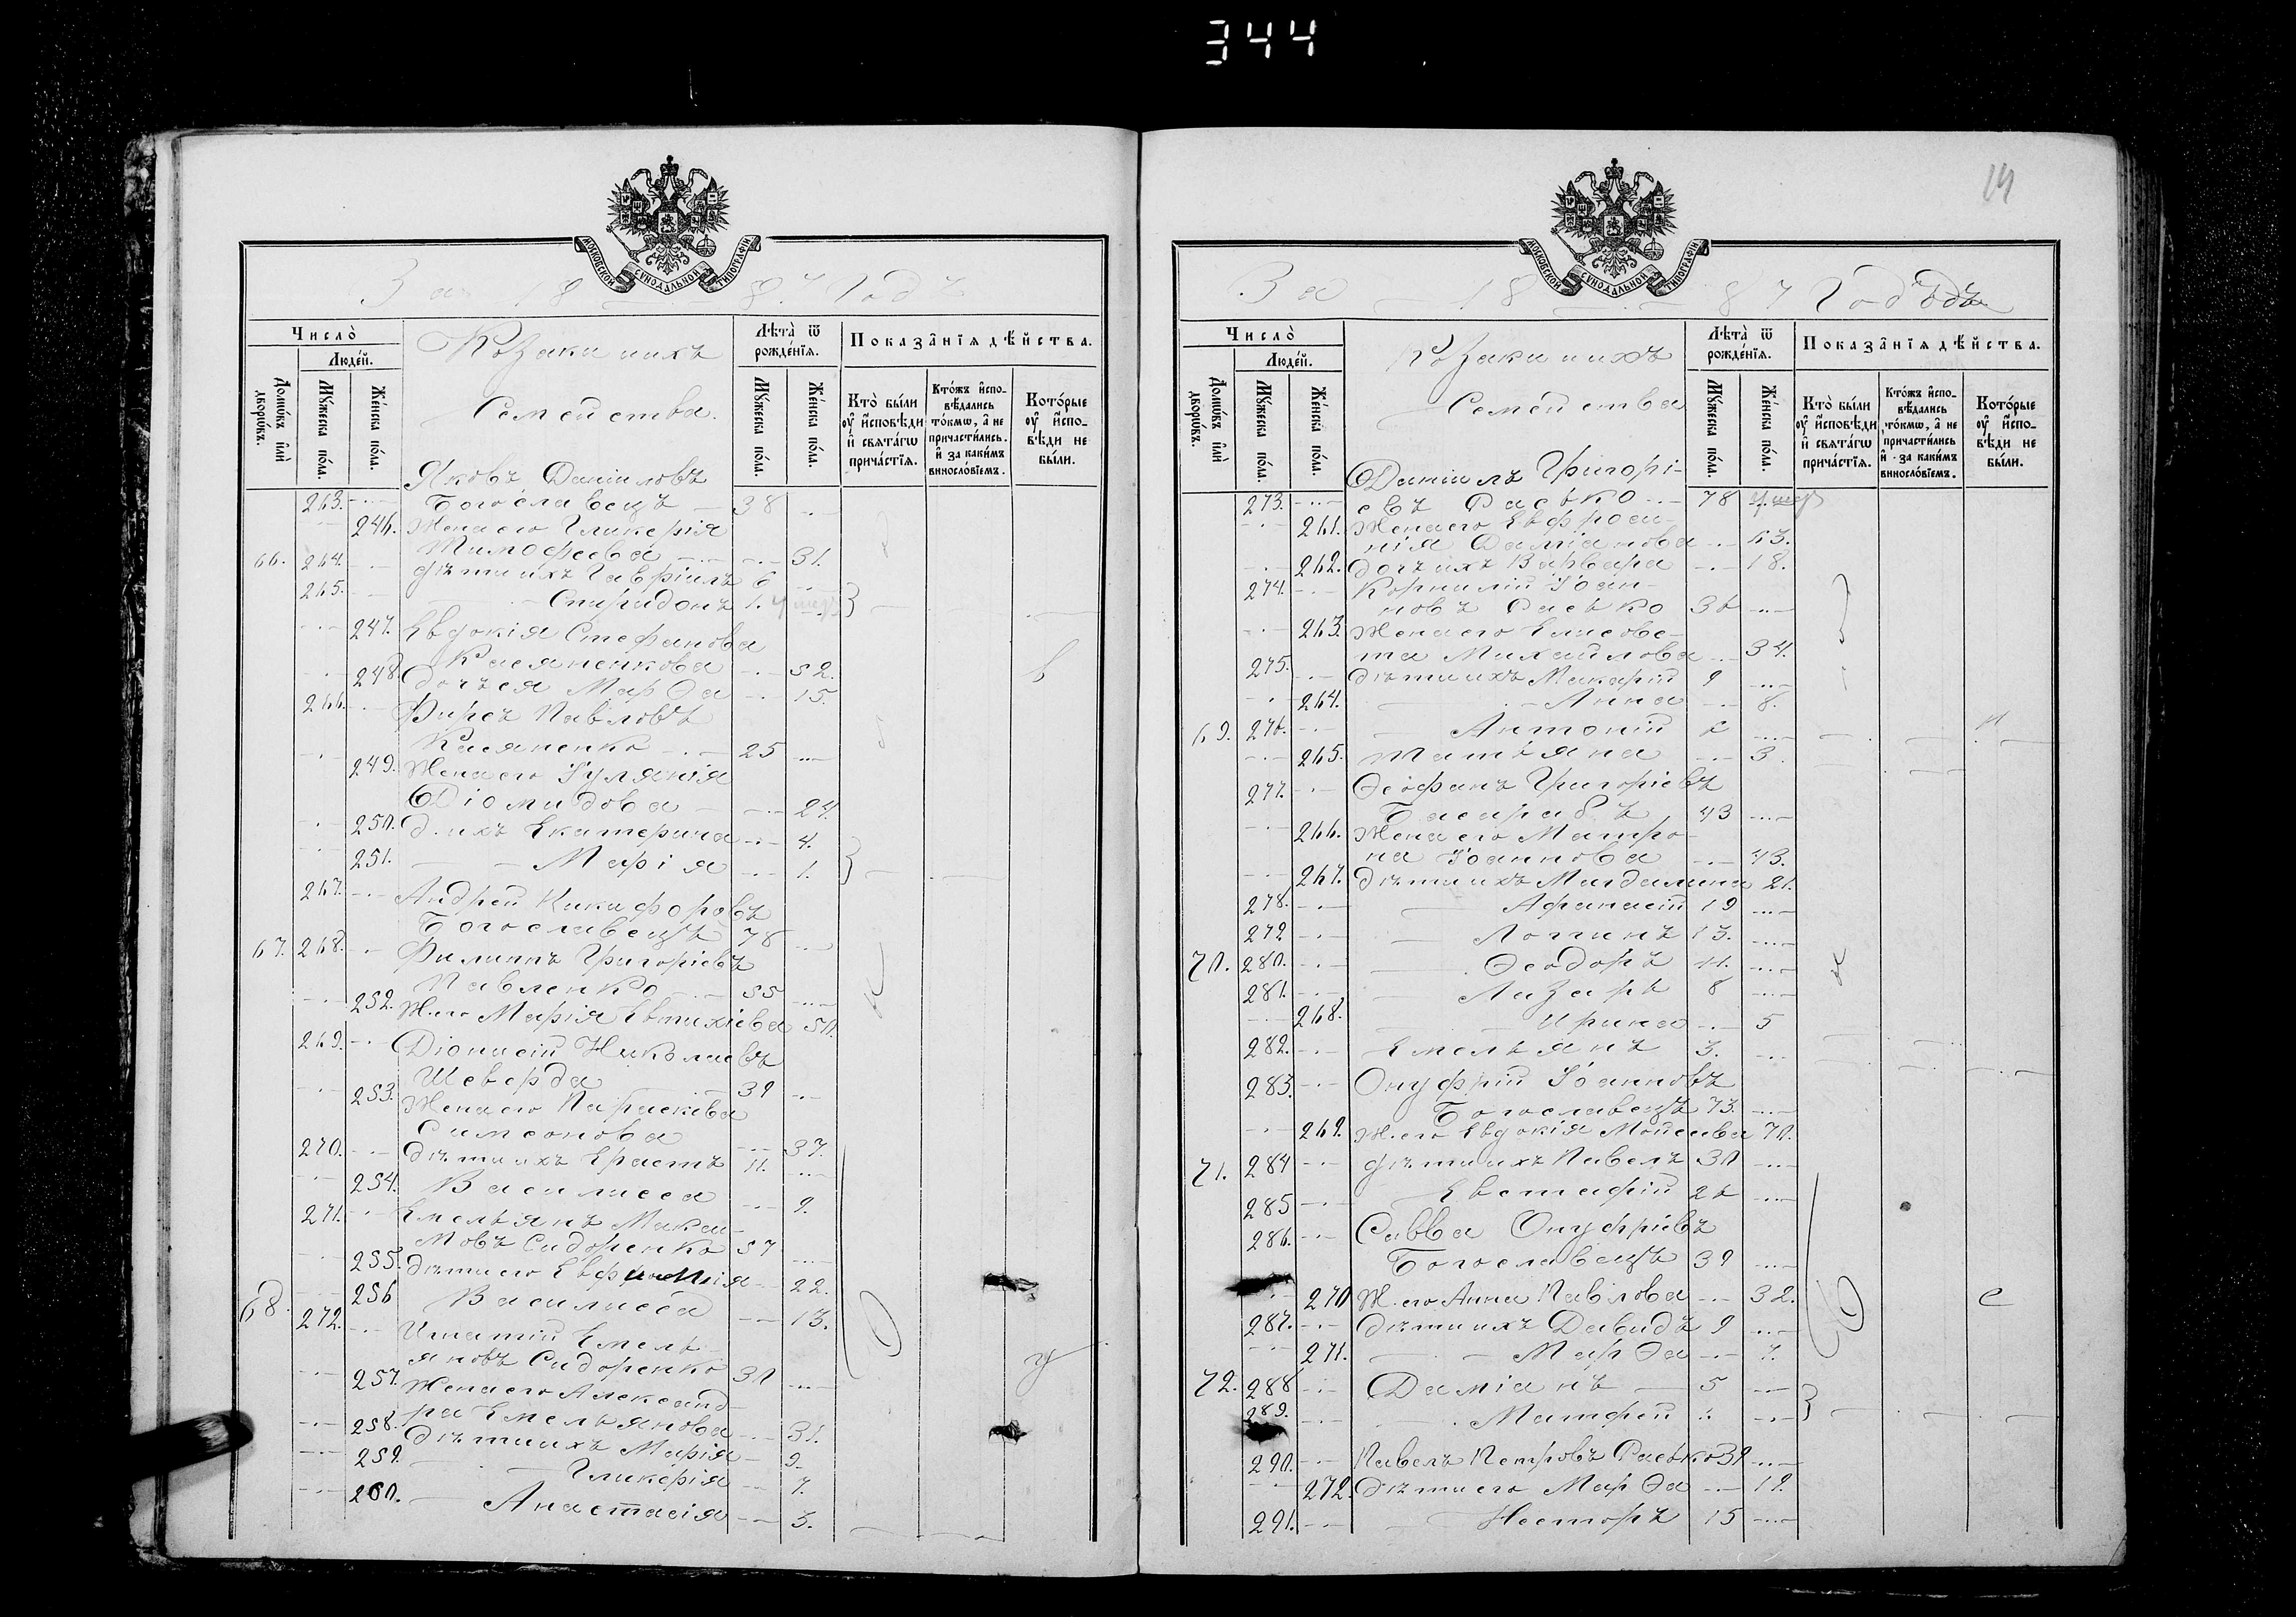 344
МОСКОВСКОЙ СѴНОДАЛЬНОЙ ТИПОГРАФІИ
За 1887 Годъ
Число̀
Люде́й.
Домѡ́въ и҆лѝ дворѡ́въ.
Мꙋ́жеска по́ла.
Же́нска по́ла.
Козаки и ихъ
Семейства.
Лѣ́та ѿ рожде́нїѧ.
Мꙋ́жеска по́ла.
Же́нска по́ла.
Показа̑нїѧ дѣ́йства.
Кто̀ бы́ли ᲂу҆ и҆́сповѣди и҆ свѧта́гѡ прича́стїѧ.
Кто́жъ и҆сповѣ́дались то́кмѡ, а҆ не причасти́лись. и҆ за каки́мъ винословїемъ.
Кото́рые ᲂу҆ и҆́сповѣди не бы́ли.
Яковъ Даніиловъ
263. Богославецъ 38
246. Жена его Гликерія
Тимофеева 31.
66. 264. дѣти ихъ Гавріилъ 6
265. Спиридонъ 1.
247. Евдокія Стефанова
Касяненкова 52.
248. Дочь ея Марѳа 15.
266. Фирсъ Павловъ
Касяненко 25
249. Жена его Іуліянія
Діомидова 24.
250. д. ихъ Екатерина 4.
251. Марія 1.
267. Андрей Никифоровъ
Богославецъ 78
67. 268. Филиппъ Григоріевъ
Павленко 55
252. Ж. его Марія Евтихіева 50.
269. Діонисій Николаевъ
Шеверда 39
253. Жена его Параскева
Симеонова 37.
270. Дѣти ихъ Ерастъ 11.
254. Василисса 9.
271. Емельянъ Макси-
мовъ Сидоренко 57
255. дѣти его Евфимія 22.
256 Василисса 13.
68. 272. Игнатій Емель-
яновъ Сидоренко 30
257. Жена его Александ-
ра Емельянова 31.
258. Дѣти ихъ Марія 9.
259. Гликерія 7.
260. Анастасія 5.
МОСКОВСКОЙ СѴНОДАЛЬНОЙ ТИПОГРАФІИ
За 1887 Годъ
Число̀
Люде́й.
Домѡ́въ и҆лѝ дворѡ́въ.
Мꙋ́жеска по́ла.
Же́нска по́ла.
Козаки и ихъ
Семейства
Лѣ́та ѿ рожде́нїѧ.
Мꙋ́жеска по́ла.
Же́нска по́ла.
Показа̑нїѧ дѣ́йства.
Кто̀ бы́ли ᲂу҆ и҆́сповѣди и҆ свѧта́гѡ прича́стїѧ.
Кто́жъ и҆сповѣ́дались то́кмѡ, а҆ не причасти́лись и҆ за каки́мъ винословїемъ.
Кото́рые ᲂу҆ и҆́сповѣди не бы́ли.
Даніилъ Григорі-
273. евъ Расько 78
261. Жена его Евфроси-
нія Даміанова 63.
262. дочь ихъ Варвара 18.
274. Корнилій Іоан-
новъ Расько 36
263. Жена его Елисаве-
та Михайлова 34.
275. Дѣти ихъ Макарій 9
264. Анна 8.
69. 276. Антоній
265. Татіяна 3.
277. Ѳеофанъ Григоріевъ
Басарабъ 43
266. Жена его Матро-
на Іоаннова 43.
267. Дѣти ихъ Магдалина 21.
278. Афанасій 19
279 Логинъ 13.
70. 280. Ѳеодоръ 11.
281. Лазарь 8
268. Ирина 5
282. Емельянъ 3.
283. Онуфрій Іоанновъ
Богославецъ 73.
269. Ж. его Евдокія Моисеева 70.
71. 284 дѣти ихъ Павелъ 30
285 Евстафій 26
286. Савва Онуфріевъ
Богославецъ 39
270 Ж. его Анна Павлова 32.
287. Дѣти ихъ Давидъ 9
271. Марѳа 7.
72. 288 Даміанъ 5
289. Матфей
290. Павелъ Петровъ Расько 39
272. Дѣти его Марѳа 19.
291. Несторъ 15